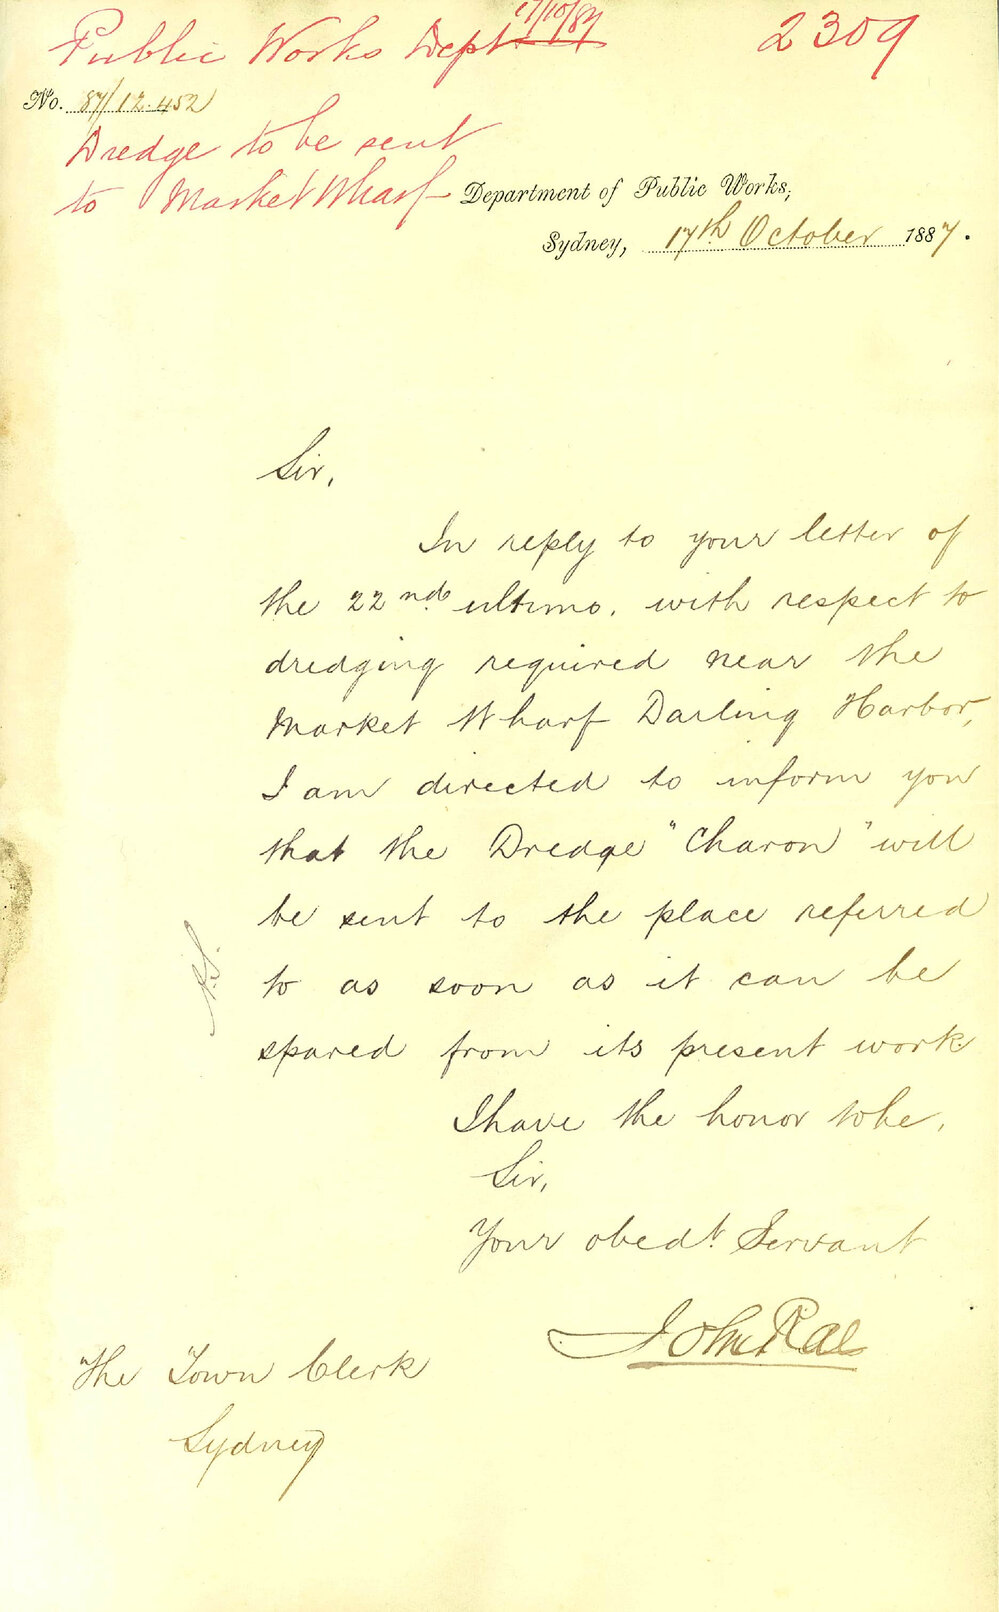 Public Works Dept 17/10/87
2309
No. 87/12.452
Dredge to be sent
to Market Wharf
Department of Public Works,
Sydney, 17th October 1887.
Sir,
In reply to your letter of
the 22nd ultimo. with respect to
dredging required near the
Market Wharf Darling Harbor,
I am directed to inform you
that the Dredge "Charon" will
be sent to the place referred
to as soon as it can be
spared from its present work
I have the honor to be,
Sir,
Your obedt. Servant
John Rae
The Town Clerk
Sydney